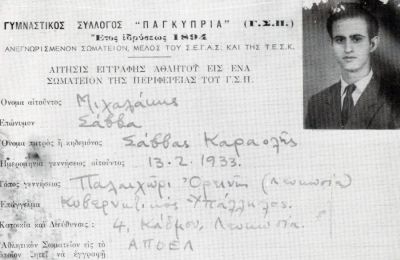 ΓΥΜΝΑΣΤΙΚΟΣ ΣΥΛΛΟΓΟΣ "ΠΑΓΚΥΠΡΙΑ" (Γ.Σ.Π.)
Ἔτος ἱδρύσεως 1894
ΑΝΕΓΝΩΡΙΣΜΕΝΟΝ ΣΩΜΑΤΕΙΟΝ, ΜΕΛΟΣ ΤΟΥ Σ.Ε.Γ.Α.Σ. ΚΑΙ ΤΗΣ Τ.Ε.Σ.Κ.
ΑΙΤΗΣΙΣ ΕΓΓΡΑΦΗΣ ΑΘΛΗΤΟΥ ΕΙΣ ΕΝΑ
ΣΩΜΑΤΕΙΟΝ ΤΗΣ ΠΕΡΙΦΕΡΕΙΑΣ ΤΟΥ Γ.Σ.Π.
Ὄνομα αἰτοῦντος Μιχαλάκης
Ἐπώνυμον Σάββα
Ὄνομα πατρὸς ἢ κηδεμόνος Σάββας Καραολῆς
Ἡμερομηνία γεννήσεως αἰτοῦντος 13.2.1933.
Τόπος γεννήσεως Παλαιχώρι Ὀρεινῆς (Λευκωσία)
Ἐπάγγελμα Κυβερνητικὸς Ὑπάλληλος.
Κατοικία καὶ Διεύθυνσις: 4, Κάδμου, Λευκωσία.
Ἀθλητικὸν Σωματεῖον εἰς τὸ ΑΠΟΕΛ
ὁποῖον ζητεῖ νὰ ἐγγραφῇ